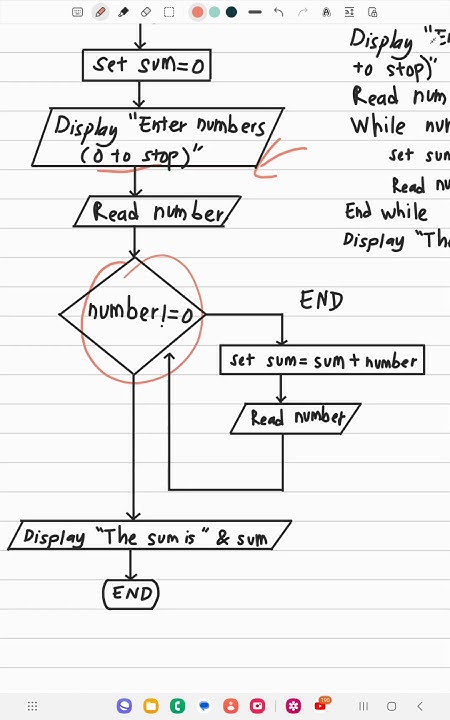 set sum=0
Display "Enter numbers
(0 to stop)"
Read number
number!=0
END
set sum = sum + number
Read number
Display "The sum is" & sum
END
Display "
to stop)"
Read num
While nu
set sum
Read nu
End while
Display "The